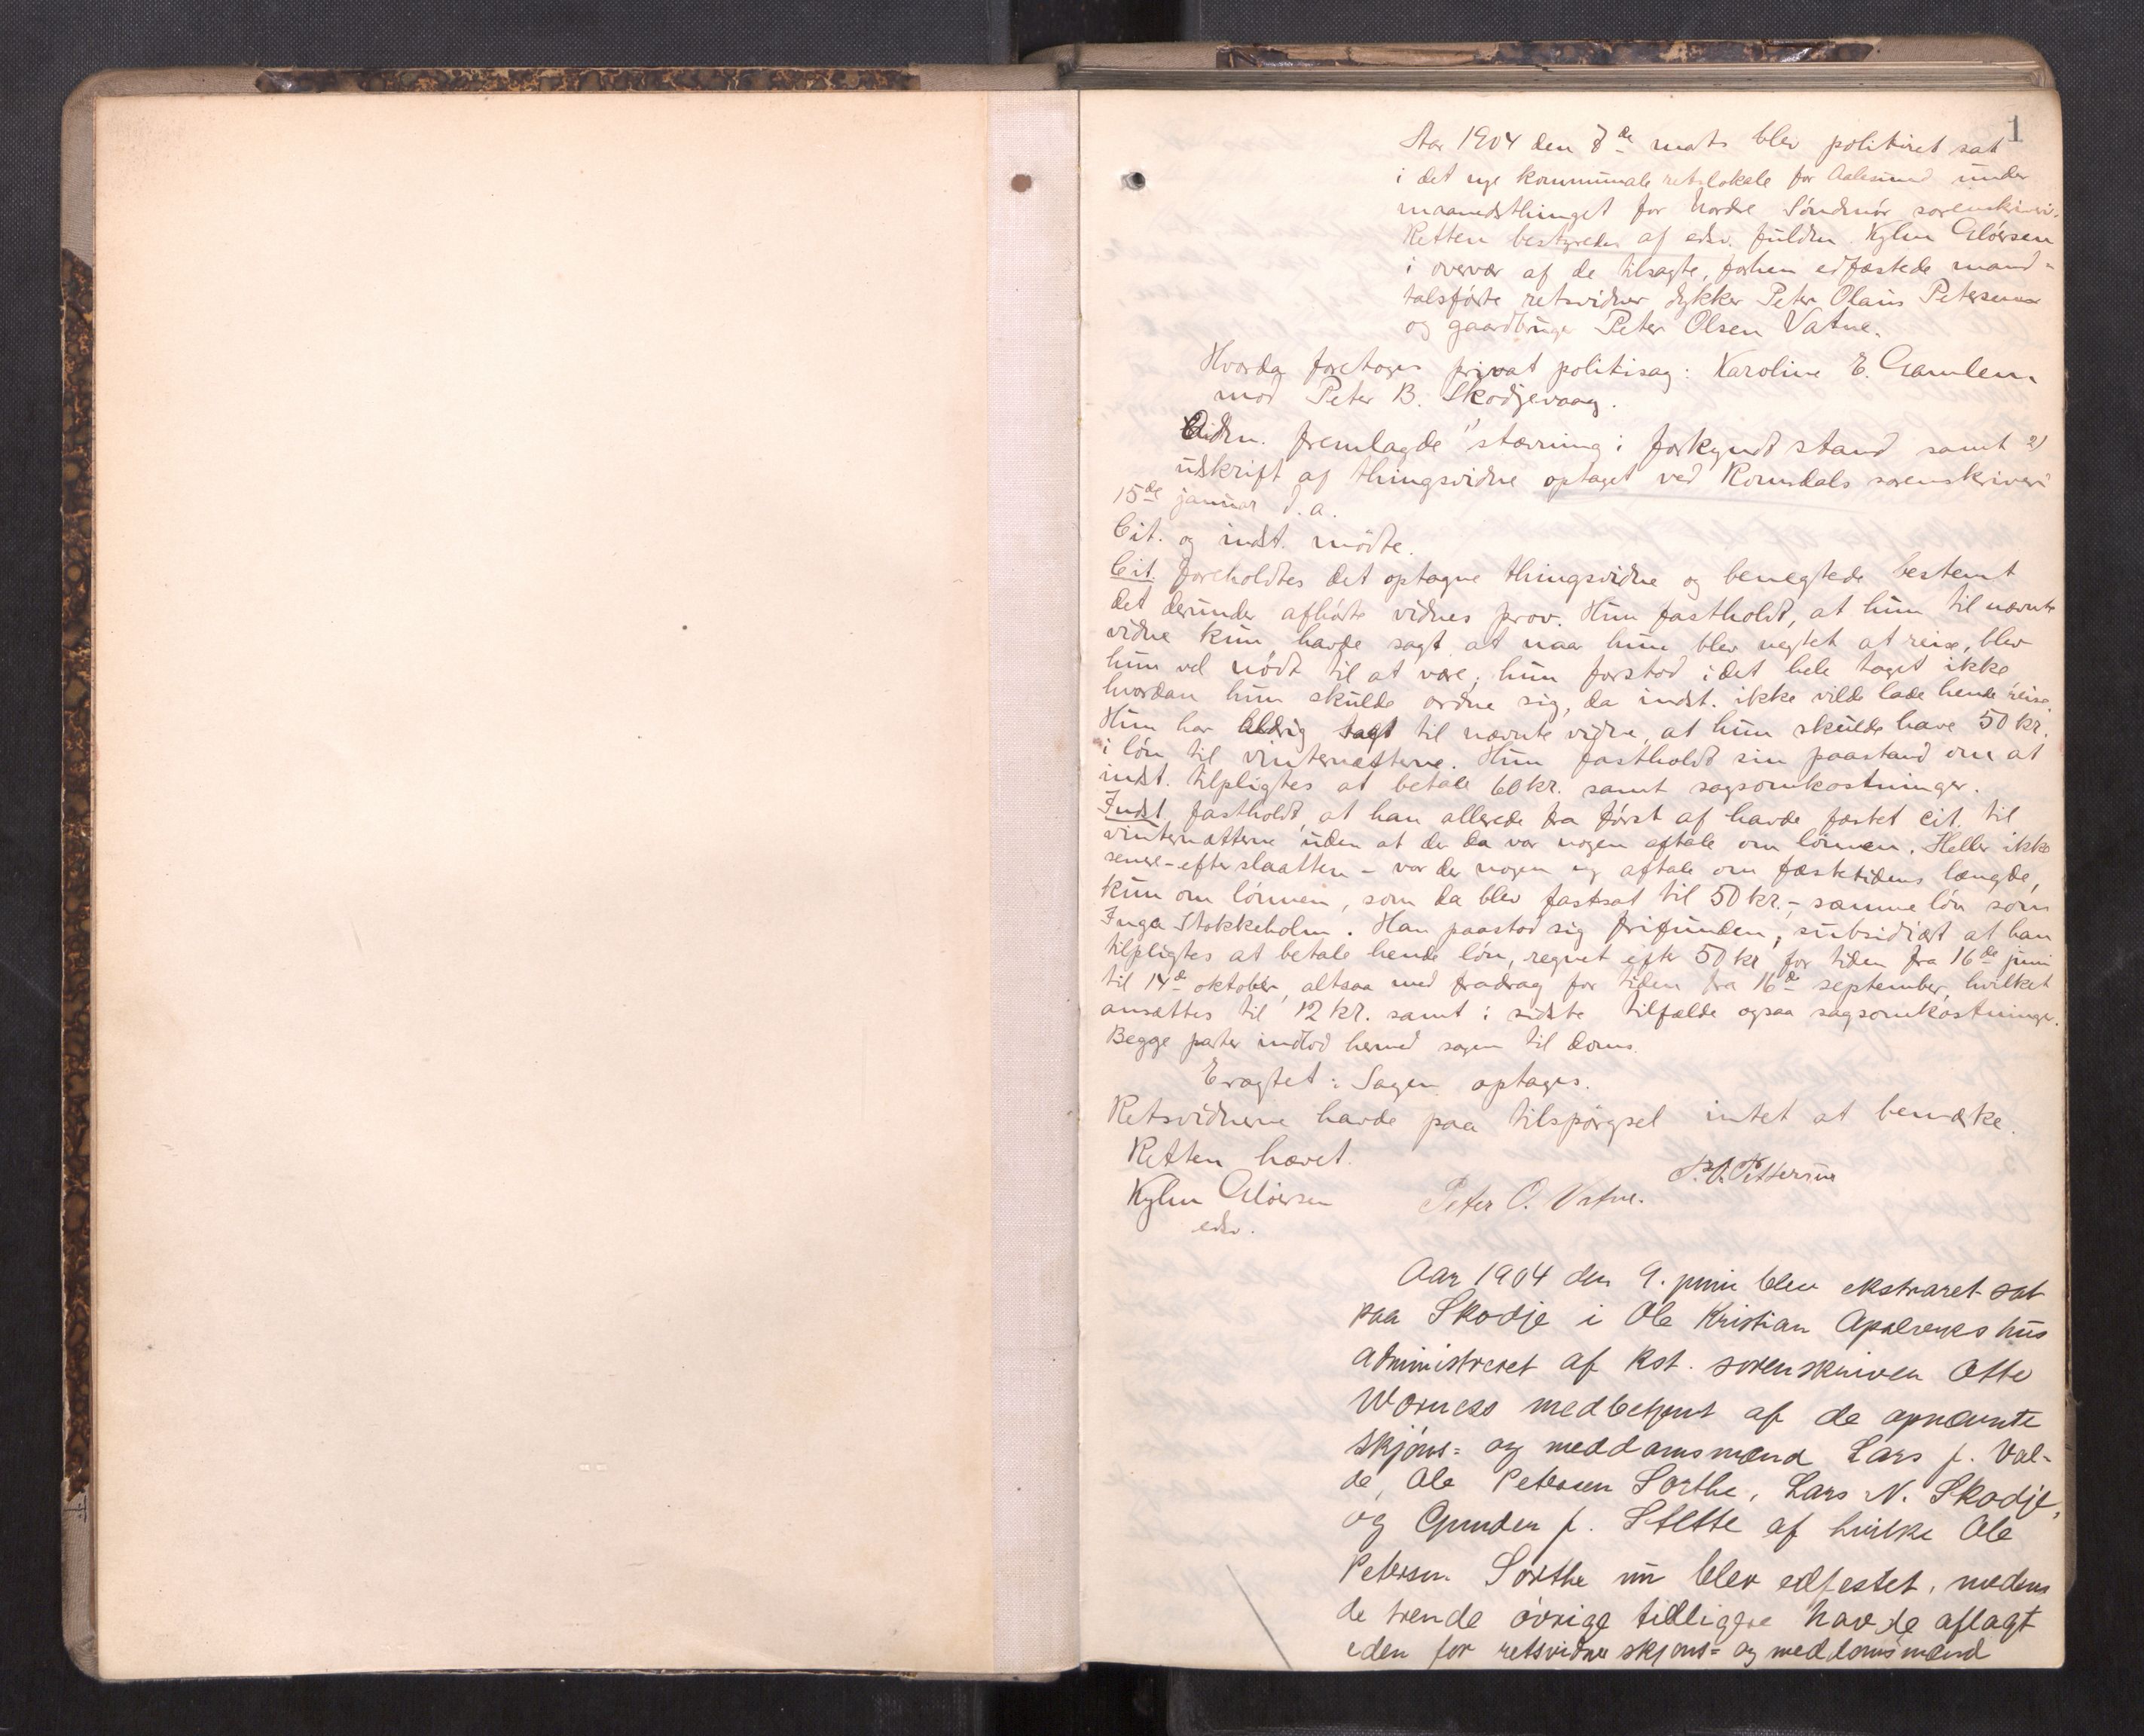 1
Aar 1904 den 8de mats blev politiret sat
i det nye kommunale retslokale for Aalesund under
maanedsthinget for Nordre Söndmör sorenskriveri.
Retten bestyredes af edsv. fuldm. Kylm Alöersen
i overvær af de tilsagte, forhen edfæstede mand-
talsförte retsvidner dykker Peter Olaus Petersen
og gaardbruger Peter Olsen Vatne.
Hvorda foretoges privat politisag: Karoline E. Gamlem
mod Peter B. Skodjevaag.
fremlagde 1) stævning i forkyndt stand samt 2)
udskrift af thingsvidne optaget ved Romsdals sorenskriveri
15de januar d. a.
Cit. og indst. mödte.
Cit. foreholdtes det optagne thingsvidne og benegtede bestemt
det derunder afhörte vidnes prov. Hun fastholdt, at hun til nævnte
vidne kun havde sagt, at naar hun blev negtet at reise, blev
hun vel nödt til at være; hun forstod i det hele taget ikke
hvordan hun skulde ordne sig, da indst. ikke vilde lade hende reise.
Hun har aldrig sagt til nævnte vidne, at hun skulde have 50 kr.
i lön til vinternætterne. Hun fastholdt sin paastand om at
indst. tilpligtes at betale 60 kr. samt sagsomkostninger.
Indst. fastholdt, at han allerede fra först af havde fæstet cit. til
vinternætterne uden at der da var nogen aftale om lönnen. Heller ikke
senere - efter slaatten - var der nogen ny aftale om fæstetidens længde,
kun om lönnen, som da blev fastsat til 50 kr. - samme lön som
Inga Stokkeholm. Han paastod sig frifunden, subsidiært at han
tilpligtes at betale hende lön, regnet efter 50 kr for tiden fra 16de juni
til 14de oktober, altsaa med fradrag for tiden fra 16de september, hvilket
ansættes til 12 kr. samt i sidste tilfælde ogsaa sagsomkostninger.
Begge parter indlod hermed sagen til doms.
Eragtet: Sagen optages.
Retsvidnerne havde paa tilspörgsel intet at bemærke.
Retten hævet.
Kylm Alöersen Peter O. Vatne. P. O. Pettersen
edsv.
Aar 1904 den 9. juni blev ekstraret sat
paa Skodje i Ole Kristian Apalsæts hus
administreret af kst. sorenskriver Otto
Worness medbetjent af de opnævnte
skjöns- og meddomsmænd Lars J. Val-
de, Ole Petersen Sorthe, Lars N. Skodje,
og Gunder J. Stette af hvilke Ole
Petersen Sorthe nu blev edfestet, medens
de trende övrige tidligere havde aflagt
eden for retsvidner skjöns- og meddomsmænd